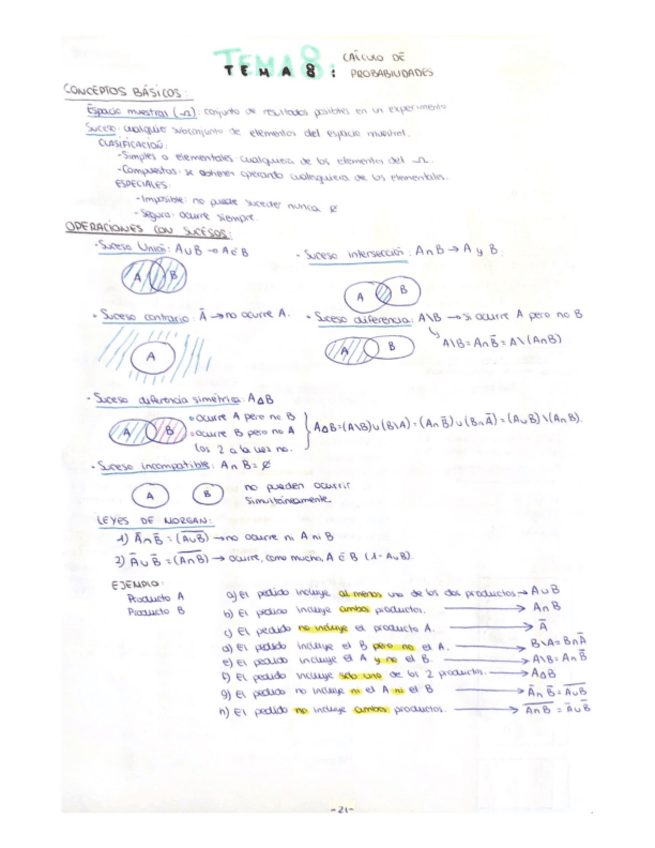 TEMA 8
TEMA 8: CÁLCULO DE PROBABILIDADES
CONCEPTOS BÁSICOS:
Espacio muestral (Ω): conjunto de resultados posibles en un experimento
Suceso: cualquier subconjunto de elementos del espacio muestral.
CLASIFICACIÓN:
- Simples o elementales cualquiera de los elementos del Ω.
- Compuestos: se obtienen operando cualesquiera de los elementales.
ESPECIALES:
- Imposible: no puede suceder nunca. Ø
- Seguro: ocurre siempre.
OPERACIONES CON SUCESOS:
· Suceso Unión: A∪B → A ó B
A B
· Suceso intersección: A∩B → A y B.
A B
· Suceso contrario: Ā → no ocurre A.
A
· Suceso diferencia: A\B → si ocurre A pero no B
A\B = A∩B̄ = A\(A∩B)
A B
· Suceso diferencia simétrica: A∆B
A B
· Ocurre A pero no B
· Ocurre B pero no A
los 2 a la vez no.
A∆B=(A\B)∪(B\A)=(A∩B̄)∪(B∩Ā)=(A∪B)\(A∩B).
· Suceso incompatible: A∩B = Ø
A B
no pueden ocurrir
simultáneamente.
LEYES DE MORGAN:
1) Ā∩B̄ = (A∪B)‾ → no ocurre ni A ni B
2) Ā∪B̄ = (A∩B)‾ → ocurre, como mucho, A ó B (1- A∪B).
EJEMPLO:
Producto A
Producto B
a) El pedido incluye al menos uno de los dos productos → A∪B
b) El pedido incluye ambos productos. → A∩B
c) El pedido no incluye el producto A. → Ā
d) El pedido incluye el B pero no el A. → B\A=B∩Ā
e) El pedido incluye el A y no el B. → A\B=A∩B̄
f) El pedido incluye sólo uno de los 2 productos. → A∆B
g) El pedido no incluye ni el A ni el B → Ā∩B̄=(A∪B)‾
h) El pedido no incluye ambos productos. → (A∩B)‾ = Ā∪B̄
-21-